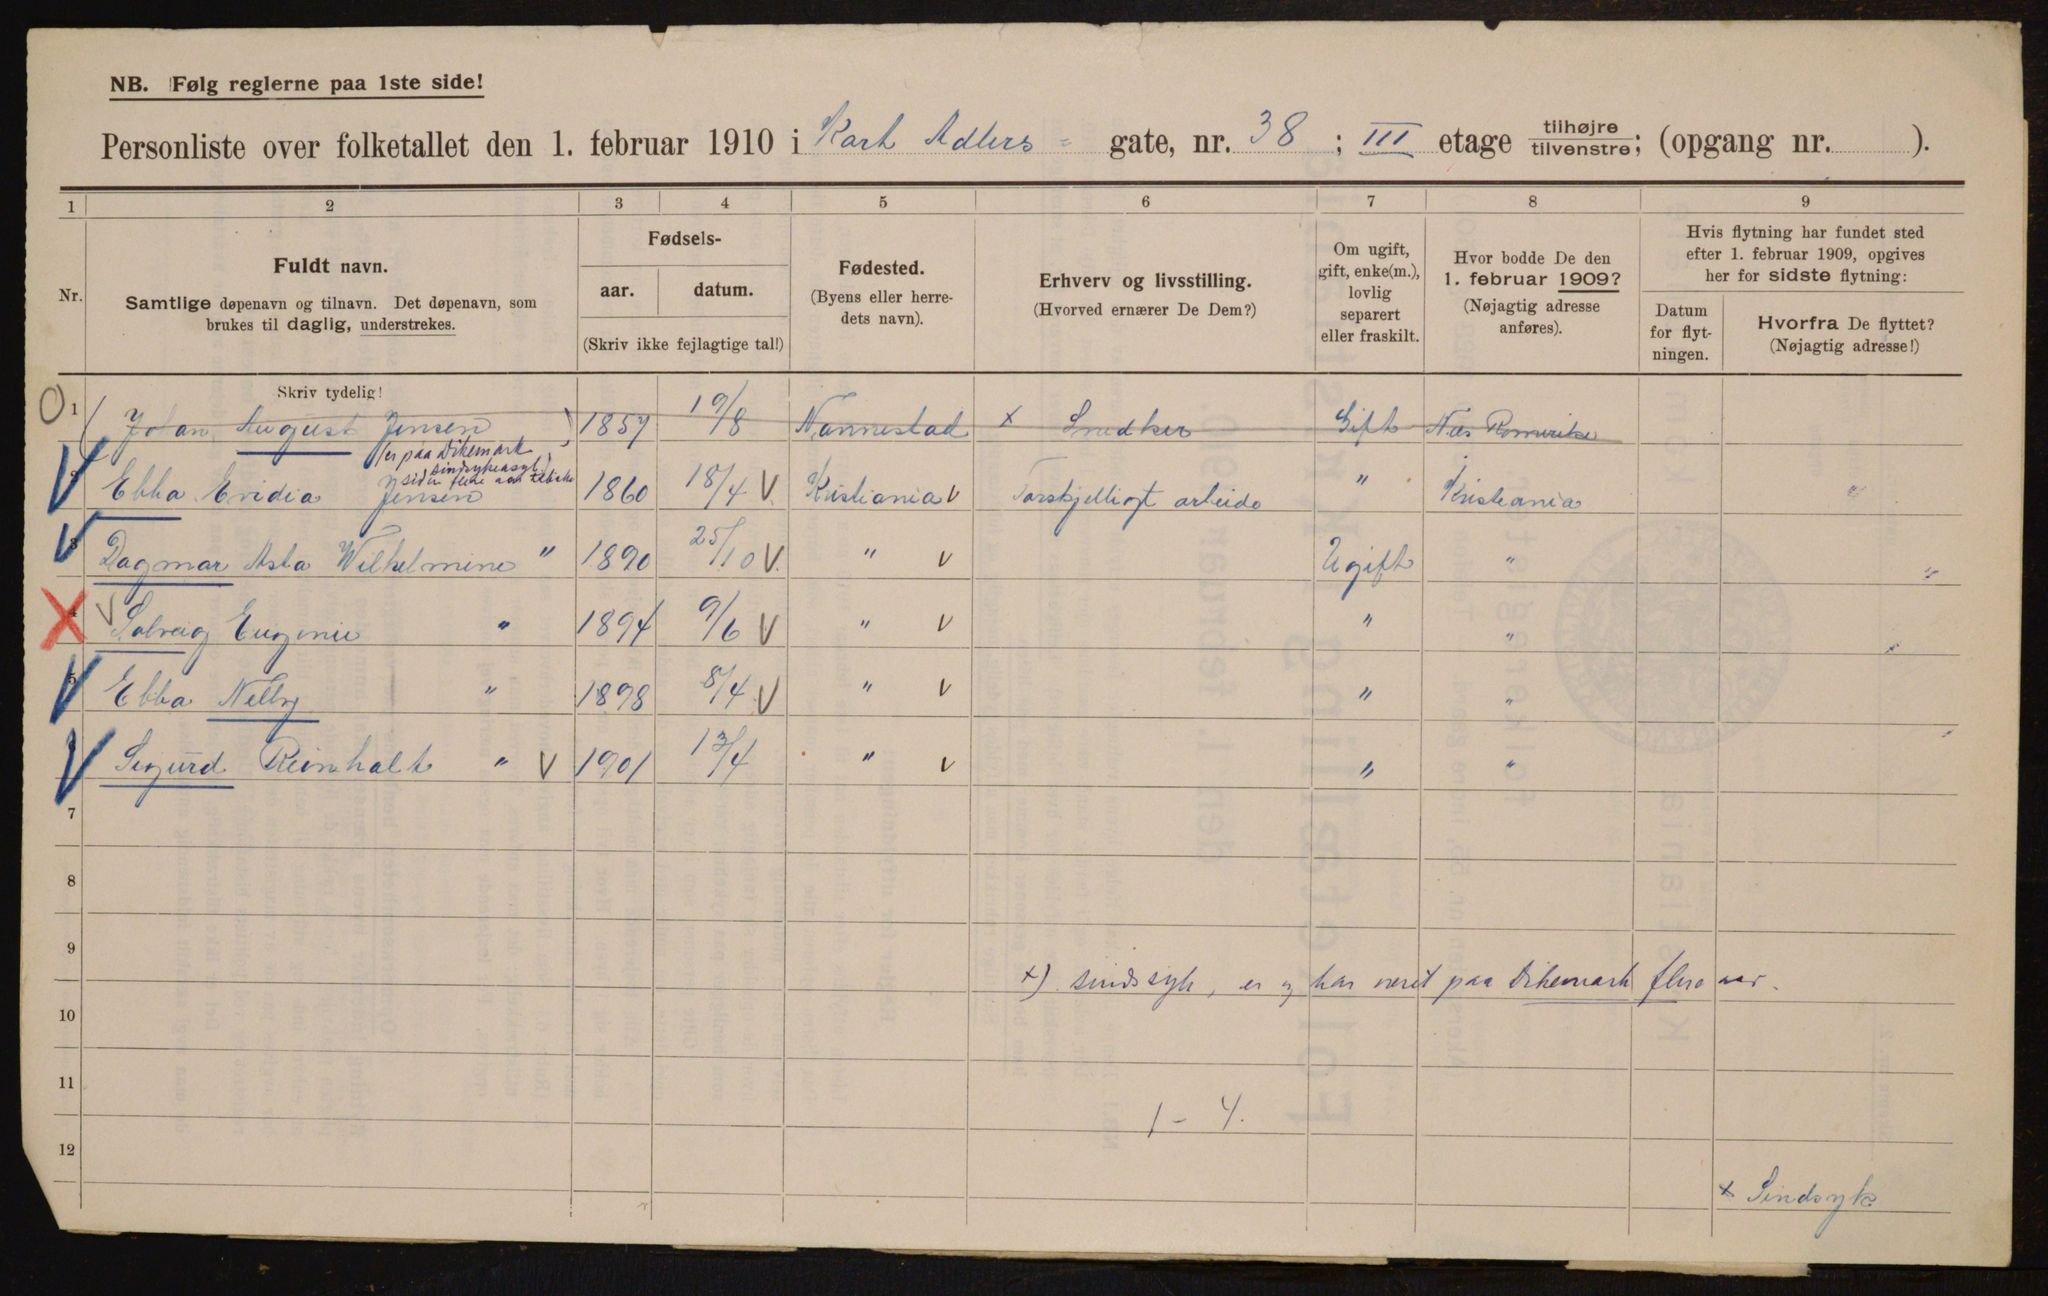 NB. Følg reglerne paa 1ste side!
Personliste over folketallet den 1. februar 1910 i Karl Adlers gate, nr. 38 ; III etage tilhøjre tilvenstre; (opgang nr. ).
1 2 3 4 5 6 7 8 9
Nr.
Fuldt navn.
Samtlige døpenavn og tilnavn. Det døpenavn, som
brukes til daglig, understrekes.
Fødsels-
aar. datum.
(Skriv ikke fejlagtige tal!)
Fødested.
(Byens eller herre-
dets navn).
Erhverv og livsstilling.
(Hvorved ernærer De Dem?)
Om ugift,
gift, enke(m.),
lovlig
separert
eller fraskilt.
Hvor bodde De den
1. februar 1909?
(Nøjagtig adresse
anføres).
Hvis flytning har fundet sted
efter 1. februar 1909, opgives
her for sidste flytning:
Datum
for flyt-
ningen.
Hvorfra De flyttet?
(Nøjagtig adresse!)
Skriv tydelig!
1 (Johan August Jensen) 1857 19/8 Nannestad x Snedker Gift Nes Romerike
(er paa Dikemark
sindsykeasyl)
siden flere aar tilbake
Ebba Evidia Jensen 1860 18/4 V Kristiania V Forskjelligt arbeide " Kristiania "
3 Dagmar Asta Wilhelmine " 1890 25/10 V " V Ugift " "
4 V Solveig Eugenie " 1894 9/6 V " V " " "
5 Ebba Nelly " 1898 8/4 V " V " "
Sigurd Reinhalt " V 1901 13/4 " V " " "
7
8
9
x) sindssyk, er og har været paa Dikemark flere aar.
10
11
1 - 4.
12
x Sindsyk